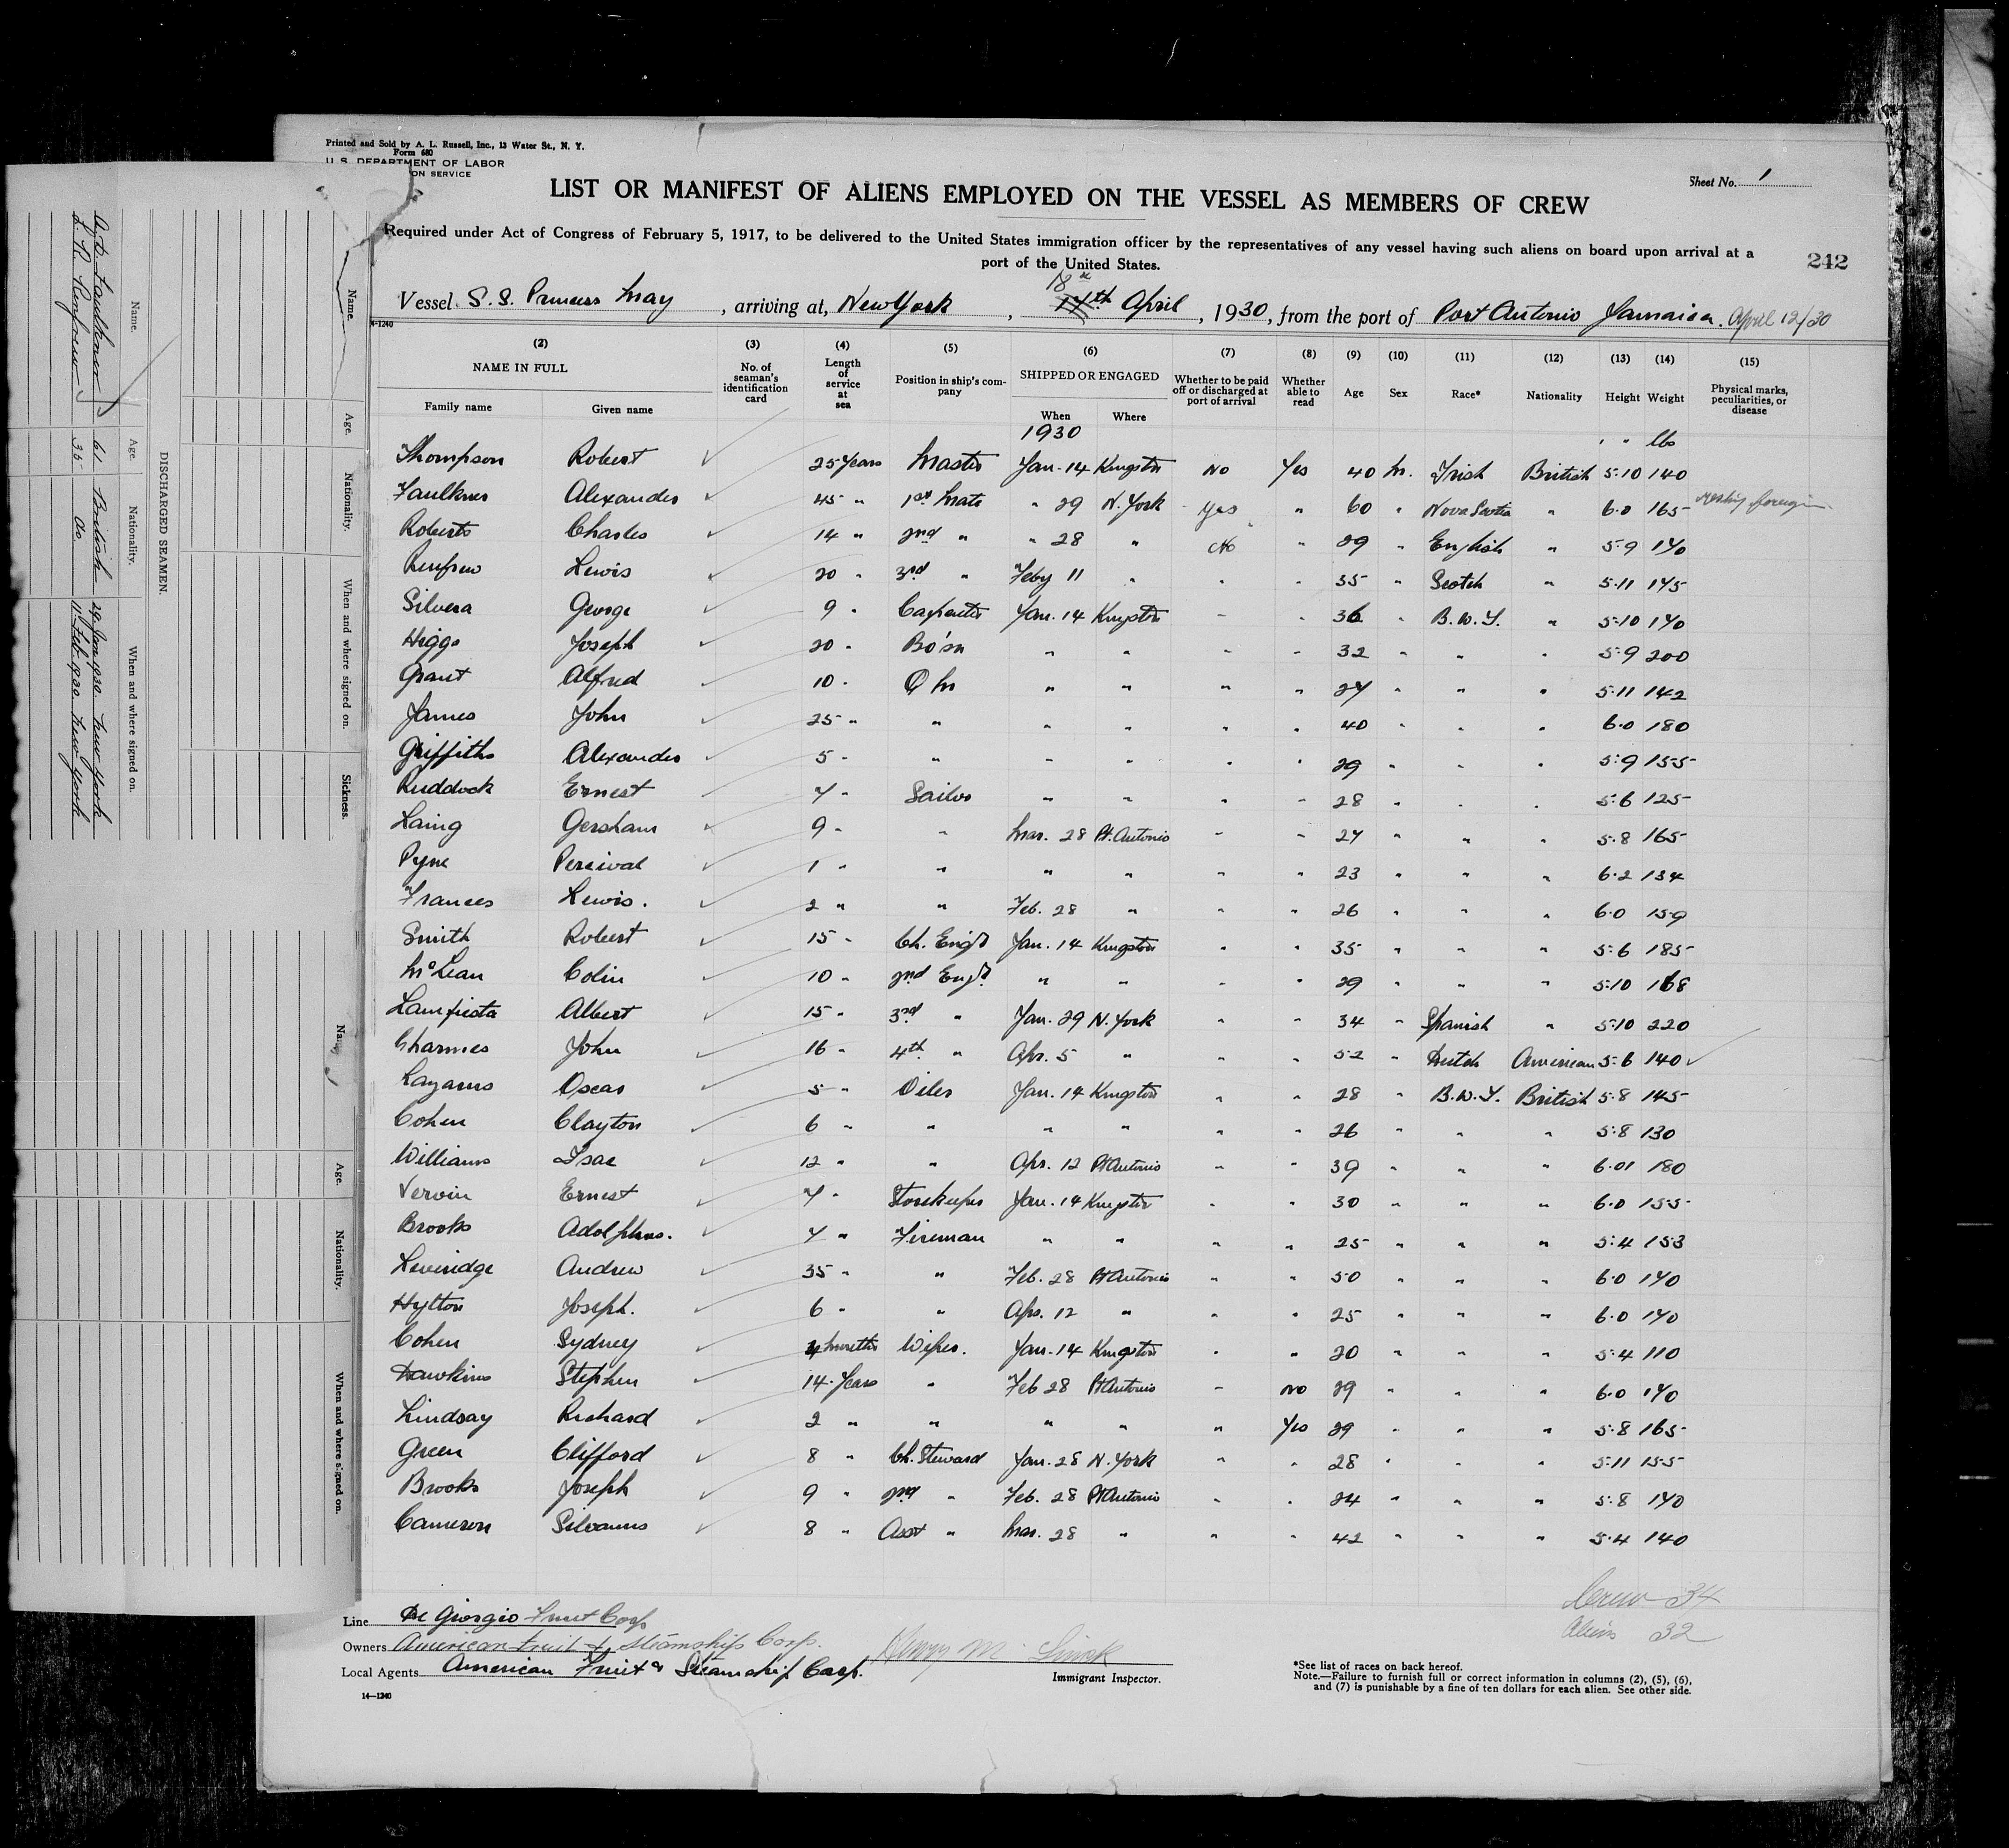 Printed and Sold by A. L. Russell, Inc., 13 Water St., N. Y.
Form 680
U. S. DEPARTMENT OF LABOR
ON SERVICE
Sheet No. 1
LIST OR MANIFEST OF ALIENS EMPLOYED ON THE VESSEL AS MEMBERS OF CREW
Required under Act of Congress of February 5, 1917, to be delivered to the United States immigration officer by the representatives of any vessel having such aliens on board upon arrival at a
port of the United States.
242
18th
Vessel S. S. Princess May, arriving at, New York, 17th April, 1930, from the port of Port Antonio Jamaica. April 12/30
N-1240
(2) (3) (4) (5) (6) (7) (8) (9) (10) (11) (12) (13) (14) (15)
NAME IN FULL No. of seaman's identification card Length of service at sea Position in ship's company SHIPPED OR ENGAGED Whether to be paid off or discharged at port of arrival Whether able to read Age Sex Race* Nationality Height Weight Physical marks, peculiarities, or disease
Family name Given name When Where
1930 ' " lbs
Thompson Robert 25 Years Master Jan. 14 Kingston No Yes 40 M. Irish British 5.10 140
Faulkner Alexander 45 " 1st Mate " 29 N. York Yes " 60 " Nova Scotia " 6.0 165 foreign
Roberts Charles 14 " 2nd " " 28 " No " 29 " English " 5.9 170
Renfrew Lewis 20 " 3rd " Feby 11 " " " 35 " Scotch " 5.11 175
Silvera George 9 " Carpenter Jan. 14 Kingston " " 36 " B.W.I. " 5.10 170
Higgs Joseph 20 " Bo'sn " " " " 32 " " " 5.9 200
Grant Alfred 10 " Q M " " " " 27 " " " 5.11 142
James John 25 " " " " " " 40 " " " 6.0 180
Griffiths Alexander 5 " " " " " " 29 " " " 5.9 155
Ruddock Ernest 7 " Sailor " " " " 28 " " " 5.6 125
Laing Gersham 9 " " Mar. 28 Pt. Antonio " " 27 " " " 5.8 165
Pyne Percival 1 " " " " " " 23 " " " 6.2 134
Frances Lewis. 2 " " Feb. 28 " " " 26 " " " 6.0 159
Smith Robert 15 " Ch. Eng'r Jan. 14 Kingston " " 35 " " " 5.6 185
McLean Colin 10 " 2nd Eng'r " " " " 29 " " " 5.10 168
Lamfiesta Albert 15 " 3rd " Jan. 29 N. York " " 34 " Spanish " 5.10 220
Charmes John 16 " 4th " Apr. 5 " " " 52 " Dutch American 5.6 140
Lazarus Oscar 5 " Oiler Jan. 14 Kingston " " 28 " B.W.I. British 5.8 145
Cohen Clayton 6 " " " " " " 26 " " " 5.8 130
Williams Isac 12 " " Apr. 12 Pt Antonio " " 39 " " " 6.01 180
Vervin Ernest 7 " Storekeeper Jan. 14 Kingston " " 30 " " " 6.0 155
Brooks Adolphus. 7 " Fireman " " " " 25 " " " 5.4 153
Leveridge Andrew 35 " " Feb. 28 Pt Antonio " " 50 " " " 6.0 170
Hylton Joseph. 6 " " Apr. 12 " " " 25 " " " 6.0 170
Cohen Sydney 4 months Wiper. Jan. 14 Kingston " " 20 " " " 5.4 110
Hawkins Stephen 14 Years " Feb 28 Pt Antonio " No 29 " " " 6.0 170
Lindsay Richard 2 " " " " " Yes 29 " " " 5.8 165
Green Clifford 8 " Ch. Steward Jan. 28 N. York " " 28 " " " 5.11 155
Brooks Joseph 9 " 2nd " Feb. 28 Pt Antonio " " 24 " " " 5.8 170
Cameron Silvanus 8 " Asst " Mar. 28 " " " 42 " " " 5.4 140
Crew 34
Aliens 32
Line Di Giorgio Fruit Corp
Owners American Fruit & Steamship Corp.
Local Agents American Fruit & Steamship Corp.
Henry M.
Immigrant Inspector.
14-1240
*See list of races on back hereof.
Note.—Failure to furnish full or correct information in columns (2), (5), (6),
and (7) is punishable by a fine of ten dollars for each alien. See other side.
DISCHARGED SEAMEN.
Name. Age. Nationality. When and where signed on.
A. D. Faulkner 61 British 29 Jan 1930. New York
L. R. Renfrew 35 Do 11 Feb 1930. New York
Name. Age. Nationality. When and where signed on. Sickness.
Name Age. Nationality. When and where signed on.